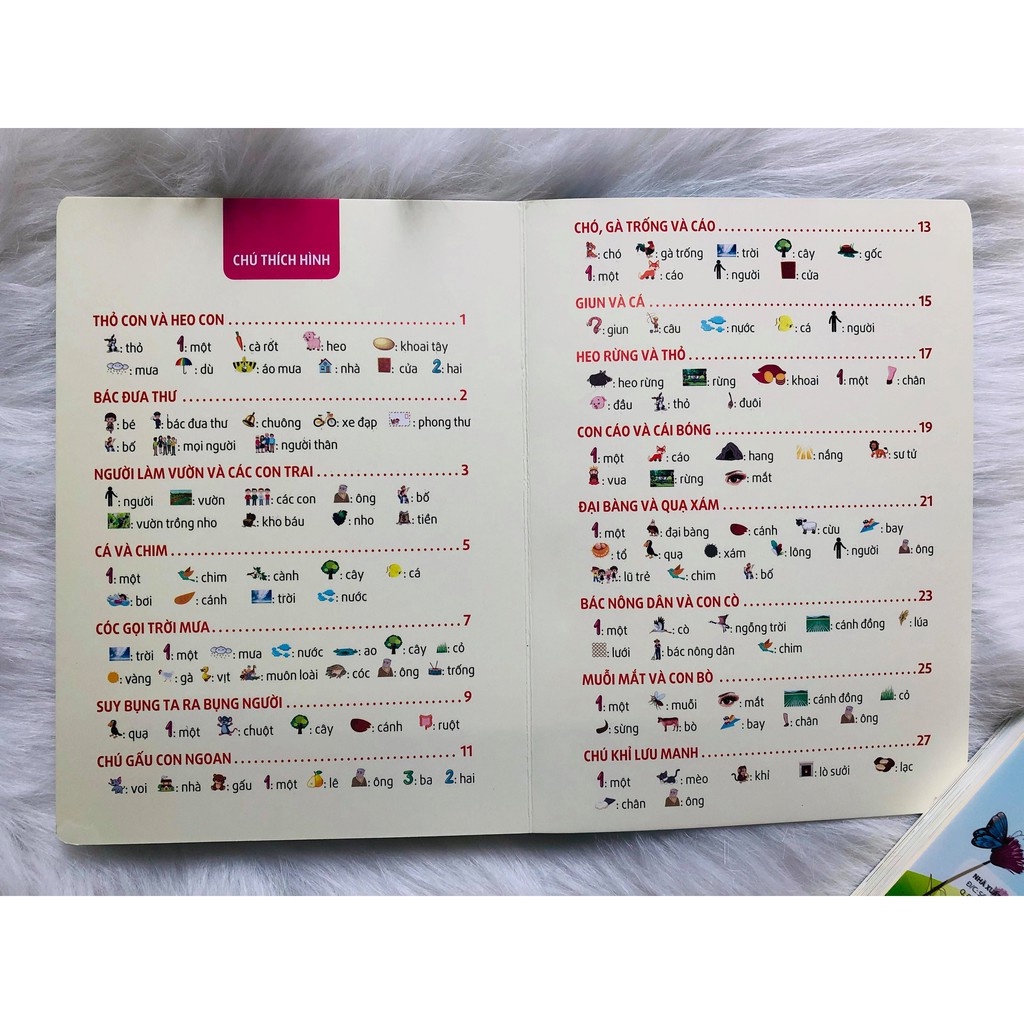 CHÚ THÍCH HÌNH
THỎ CON VÀ HEO CON ........ 1
: thỏ 1: một : cà rốt : heo : khoai tây
: mưa : dù : áo mưa : nhà : cửa 2: hai
BÁC ĐƯA THƯ ........ 2
: bé : bác đưa thư : chuông : xe đạp : phong thư
: bố : mọi người : người thân
NGƯỜI LÀM VƯỜN VÀ CÁC CON TRAI ........ 3
: người : vườn : các con : ông : bố
: vườn trồng nho : kho báu : nho : tiền
CÁ VÀ CHIM ........ 5
1: một : chim : cành : cây : cá
: bơi : cánh : trời : nước
CÓC GỌI TRỜI MƯA ........ 7
: trời 1: một : mưa : nước : ao : cây : cỏ
: vàng : gà : vịt : muôn loài : cóc : ông : trống
SUY BỤNG TA RA BỤNG NGƯỜI ........ 9
: quạ 1: một : chuột : cây : cánh : ruột
CHÚ GẤU CON NGOAN ........ 11
: voi : nhà : gấu 1: một : lê : ông 3: ba 2: hai
CHÓ, GÀ TRỐNG VÀ CÁO ........ 13
: chó : gà trống : trời : cây : gốc
1: một : cáo : người : cửa
GIUN VÀ CÁ ........ 15
: giun : câu : nước : cá : người
HEO RỪNG VÀ THỎ ........ 17
: heo rừng : rừng : khoai 1: một : chân
: đầu : thỏ : đuôi
CON CÁO VÀ CÁI BÓNG ........ 19
1: một : cáo : hang : nắng : sư tử
: vua : rừng : mắt
ĐẠI BÀNG VÀ QUẠ XÁM ........ 21
1: một : đại bàng : cánh : cừu : bay
: tổ : quạ : xám : lông : người : ông
: lũ trẻ : chim : bố
BÁC NÔNG DÂN VÀ CON CÒ ........ 23
1: một : cò : ngỗng trời : cánh đồng : lúa
: lưới : bác nông dân : chim
MUỖI MẮT VÀ CON BÒ ........ 25
1: một : muỗi : mắt : cánh đồng : cỏ
: sừng : bò : bay : chân : ông
CHÚ KHỈ LƯU MANH ........ 27
1: một : mèo : khỉ : lò sưởi : lạc
: chân : ông